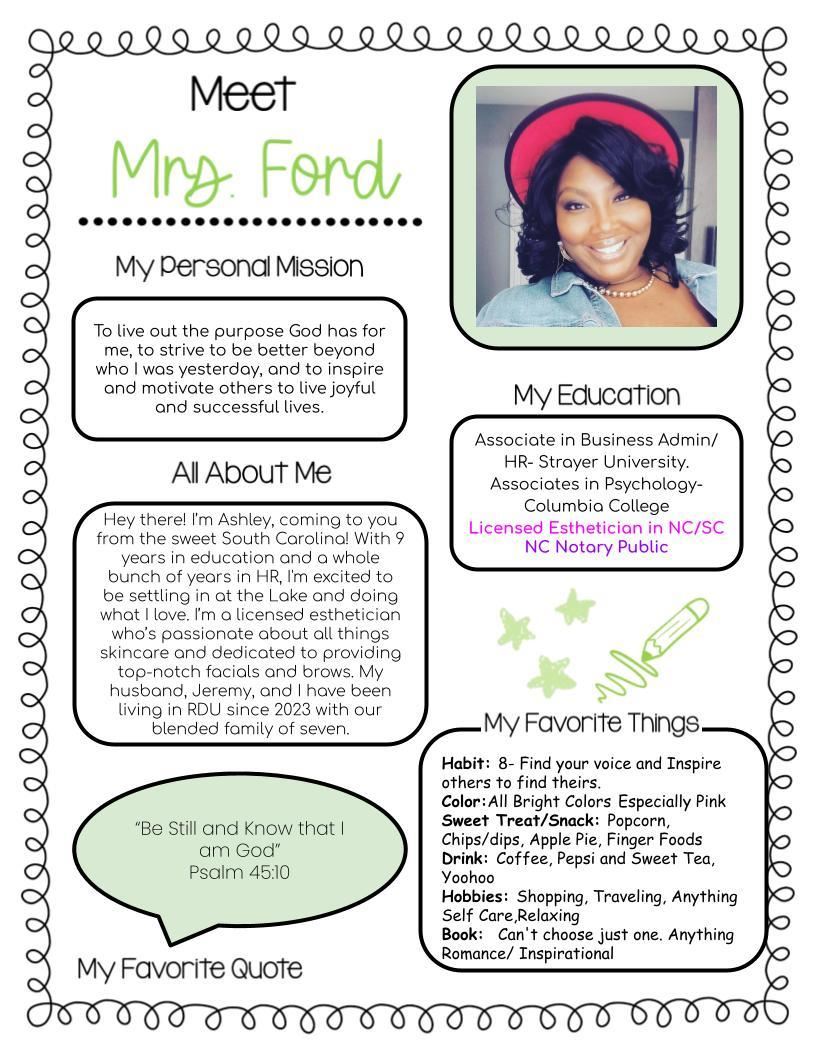 Meet
Mrs. Ford
My Personal Mission
To live out the purpose God has for
me, to strive to be better beyond
who I was yesterday, and to inspire
and motivate others to live joyful
and successful lives.
All About Me
Hey there! I'm Ashley, coming to you
from the sweet South Carolina! With 9
years in education and a whole
bunch of years in HR, I'm excited to
be settling in at the Lake and doing
what I love. I'm a licensed esthetician
who's passionate about all things
skincare and dedicated to providing
top-notch facials and brows. My
husband, Jeremy, and I have been
living in RDU since 2023 with our
blended family of seven.
"Be Still and Know that I
am God"
Psalm 45:10
My Favorite Quote
My Education
Associate in Business Admin/
HR- Strayer University.
Associates in Psychology-
Columbia College
Licensed Esthetician in NC/SC
NC Notary Public
My Favorite Things
Habit: 8- Find your voice and Inspire
others to find theirs.
Color:All Bright Colors Especially Pink
Sweet Treat/Snack: Popcorn,
Chips/dips, Apple Pie, Finger Foods
Drink: Coffee, Pepsi and Sweet Tea,
Yoohoo
Hobbies: Shopping, Traveling, Anything
Self Care,Relaxing
Book: Can't choose just one. Anything
Romance/ Inspirational